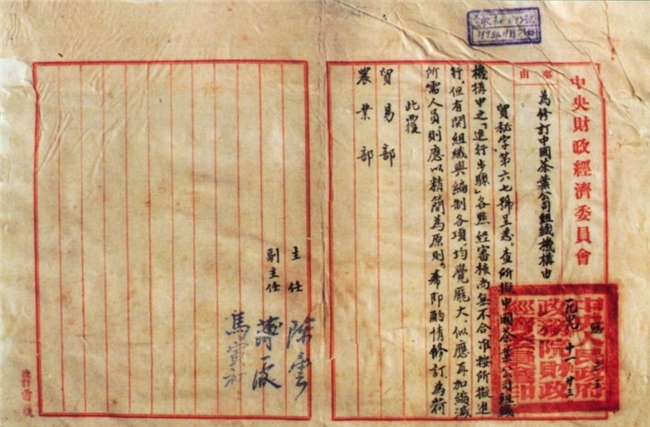 中央財政經濟委員會
事由
為修訂中國茶葉公司組織機構由
貿秘字第六七號呈悉、查所擬中國茶葉公司組織
機構中之「進行步驟」各點經審核尚無不合准按所擬進
行、但有関組織與編制各項、均覺龐大、似應再加縮減
所需人員則應以精簡為原則。希即酌情修訂為荷
此覆
貿易部
農業部
主任 陳雲
副主任 薄一波
馬寅初
中央人民政府
政務院財政
經濟委員會印